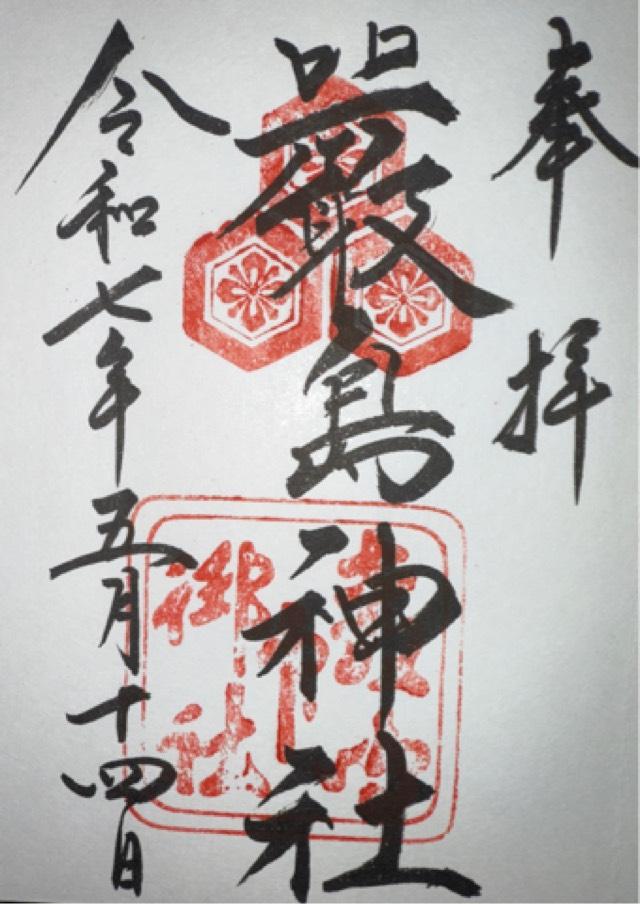 奉拝
嚴島神社
令和七年五月十四日